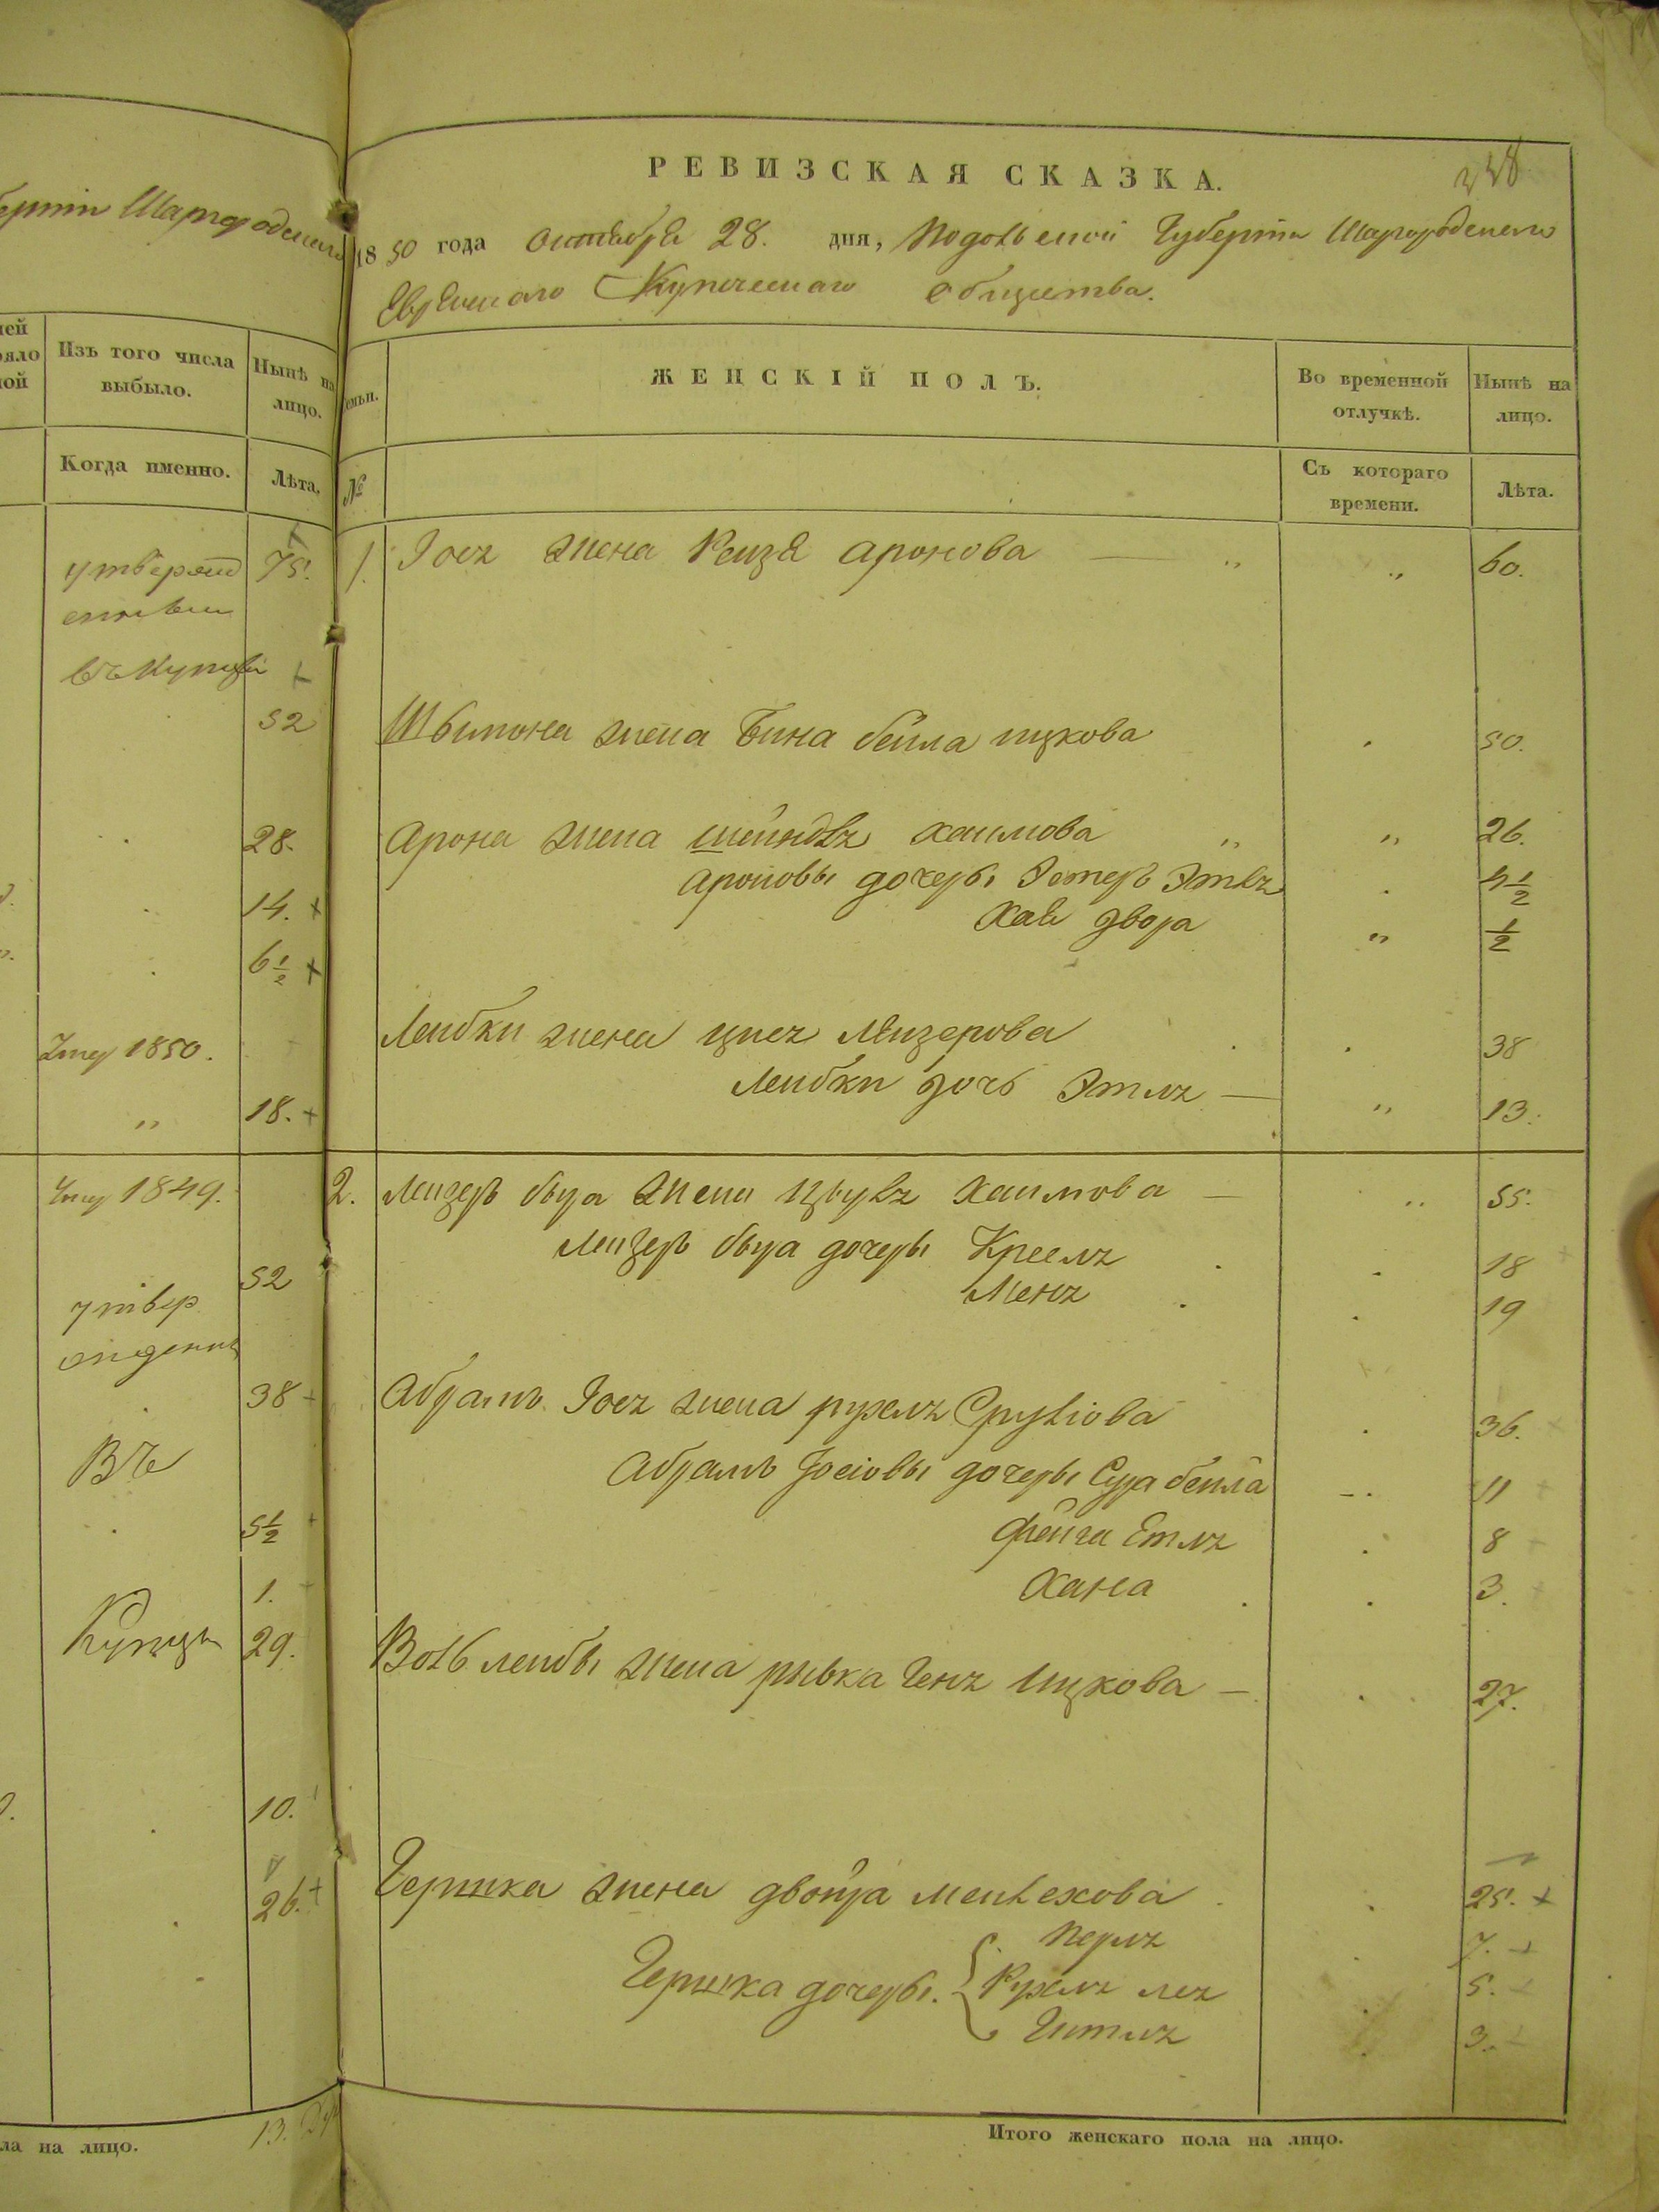 губернiи Шаргородскаго
Изъ того числа
выбыло.
Нынѣ на
лицо.
Когда именно.
Лѣта.
утвержд
75.
въ Купцы
52
28.
14.
6 1/2
1850.
18.
1849.
52
утвер
жденны
38
Въ
5 1/2
1.
Купцы
29.
10.
26.
ла на лицо.
13.
РЕВИЗСКАЯ СКАЗКА.
238
1850 года Октября 28. дня, Подольской Губернiи Шаргородскаго
Еврейскаго Купеческаго общества.
ЖЕНСКІЙ ПОЛЪ.
Во временной
отлучкѣ.
Нынѣ на
лицо.
№
Съ котораго
времени.
Лѣта.
1. Іося жена Рейзя Аронова — „ „ 60.
Шылиона жена Бина бейла ицкова 50.
Арона жена шейндля хаимова „ „ 26.
Ароновы дочери Эстеръ Этля 4 1/2
Хая двора „ 1/2
Лейбки жена ципя Лейзерова 38
Лейбки дочь Этля — „ 13.
2. Лейзеръ бера жена Хаимова — „ 55.
Лейзеръ бера дочери Крейля 18
Меня 19
Абрамъ Іося жена рухля Срулiова 36.
Абрамъ Іосiовы дочери Сура бейла 11
Фейга Етля 8
Хана 3.
Воль лейбы жена рывка Геня Ицкова — 27.
Гершка жена двойра Мелехова 25.
Перля 7.
Гершка дочери. Рухля лея 5.
Гитля 3.
Итого женскаго пола на лицо.